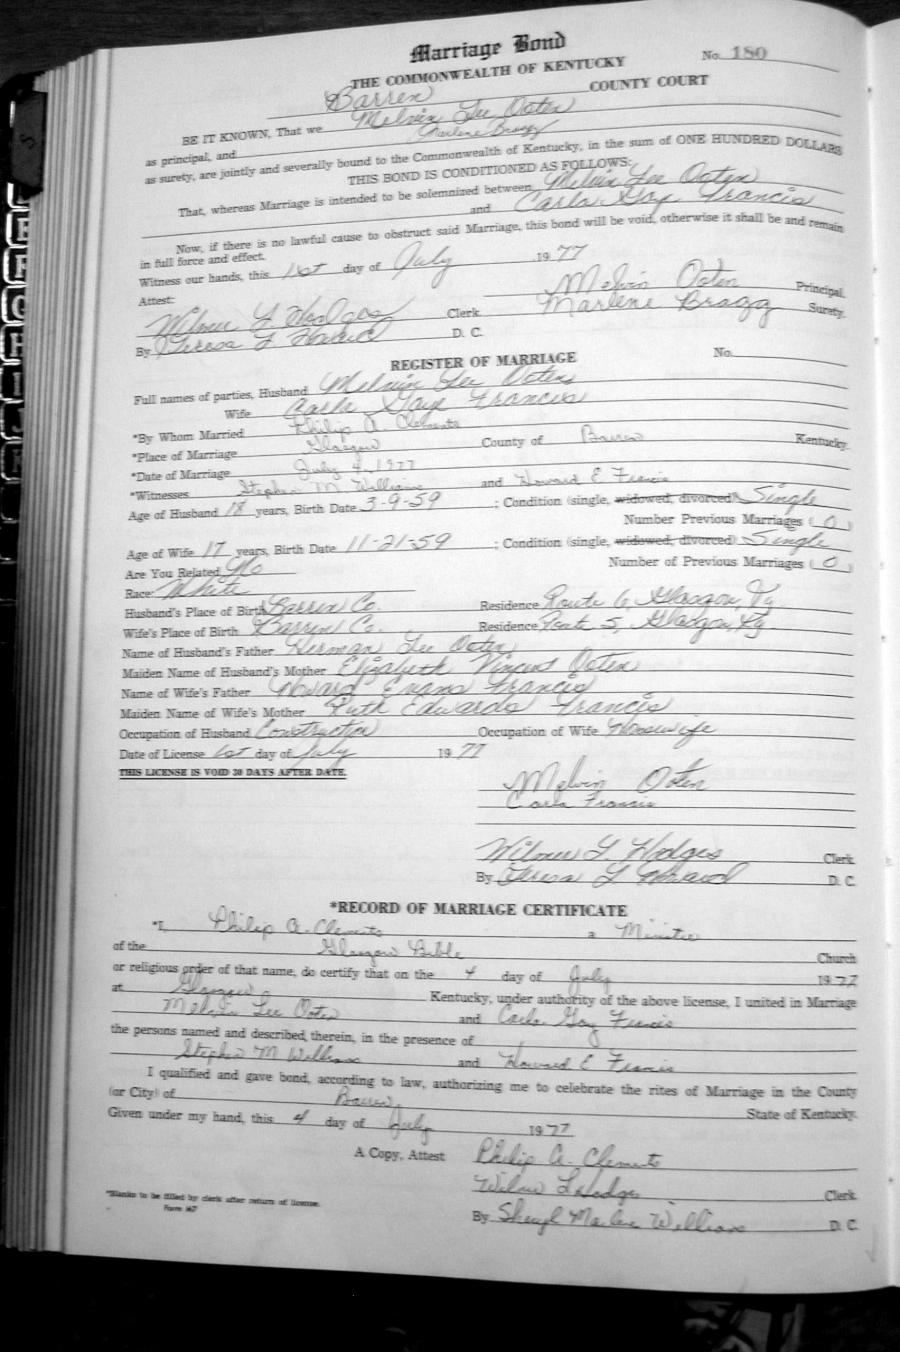 Marriage Bond
No. 180
THE COMMONWEALTH OF KENTUCKY
Barren COUNTY COURT
BE IT KNOWN, That we Melvin Lee Ooten
as principal, and Marlene Bragg
as surety, are jointly and severally bound to the Commonwealth of Kentucky, in the sum of ONE HUNDRED DOLLARS
THIS BOND IS CONDITIONED AS FOLLOWS:
That, whereas Marriage is intended to be solemnized between Melvin Lee Ooten
and Carla Gay Francis
Now, if there is no lawful cause to obstruct said Marriage, this bond will be void, otherwise it shall be and remain
in full force and effect.
Witness our hands, this 1st day of July 1977
Attest: Melvin Ooten Principal.
Wilnee L Hodges Clerk Marlene Bragg Surety.
By Teresa L Howard D. C.
REGISTER OF MARRIAGE No.
Full names of parties, Husband Melvin Lee Ooten
Wife Carla Gaye Francis
*By Whom Married Philip A. Clements
*Place of Marriage Glasgow County of Barren Kentucky.
*Date of Marriage July 4, 1977
*Witnesses Stephen M Williams and Howard E Francis
Age of Husband 18 years, Birth Date 3-9-59 ; Condition (single, widowed, divorced) Single
Number Previous Marriages ( 0 )
Age of Wife 17 years, Birth Date 11-21-59 ; Condition (single, widowed, divorced) Single
Are You Related No Number of Previous Marriages ( 0 )
Race: White
Husband's Place of Birth Barren Co. Residence Route 6, Glasgow, Ky
Wife's Place of Birth Barren Co. Residence Route 5, Glasgow, Ky.
Name of Husband's Father Herman Lee Ooten
Maiden Name of Husband's Mother Elizabeth Vincent Ooten
Name of Wife's Father Howard Evans Francis
Maiden Name of Wife's Mother Ruth Edwards Francis
Occupation of Husband Construction Occupation of Wife Housewife
Date of License 1st day of July 1977
THIS LICENSE IS VOID 30 DAYS AFTER DATE.
Melvin Ooten
Carla Francis
Wilnee L. Hodges Clerk
By Teresa L Howard D. C.
*RECORD OF MARRIAGE CERTIFICATE
*I, Philip A. Clements a Minister
of the Glasgow Bible Church
or religious order of that name, do certify that on the 4 day of July 1977
at Glasgow Kentucky, under authority of the above license, I united in Marriage
Melvin Lee Ooten and Carla Gay Francis
the persons named and described, therein, in the presence of
Stephen M Williams and Howard E Francis
I qualified and gave bond, according to law, authorizing me to celebrate the rites of Marriage in the County
(or City) of Barren State of Kentucky.
Given under my hand, this 4 day of July 1977
A Copy, Attest Philip A. Clements
Wilnee L Hodges Clerk
By Sheryl Marlene Williams D. C.
*Blanks to be filled by clerk after return of license.
Form 147